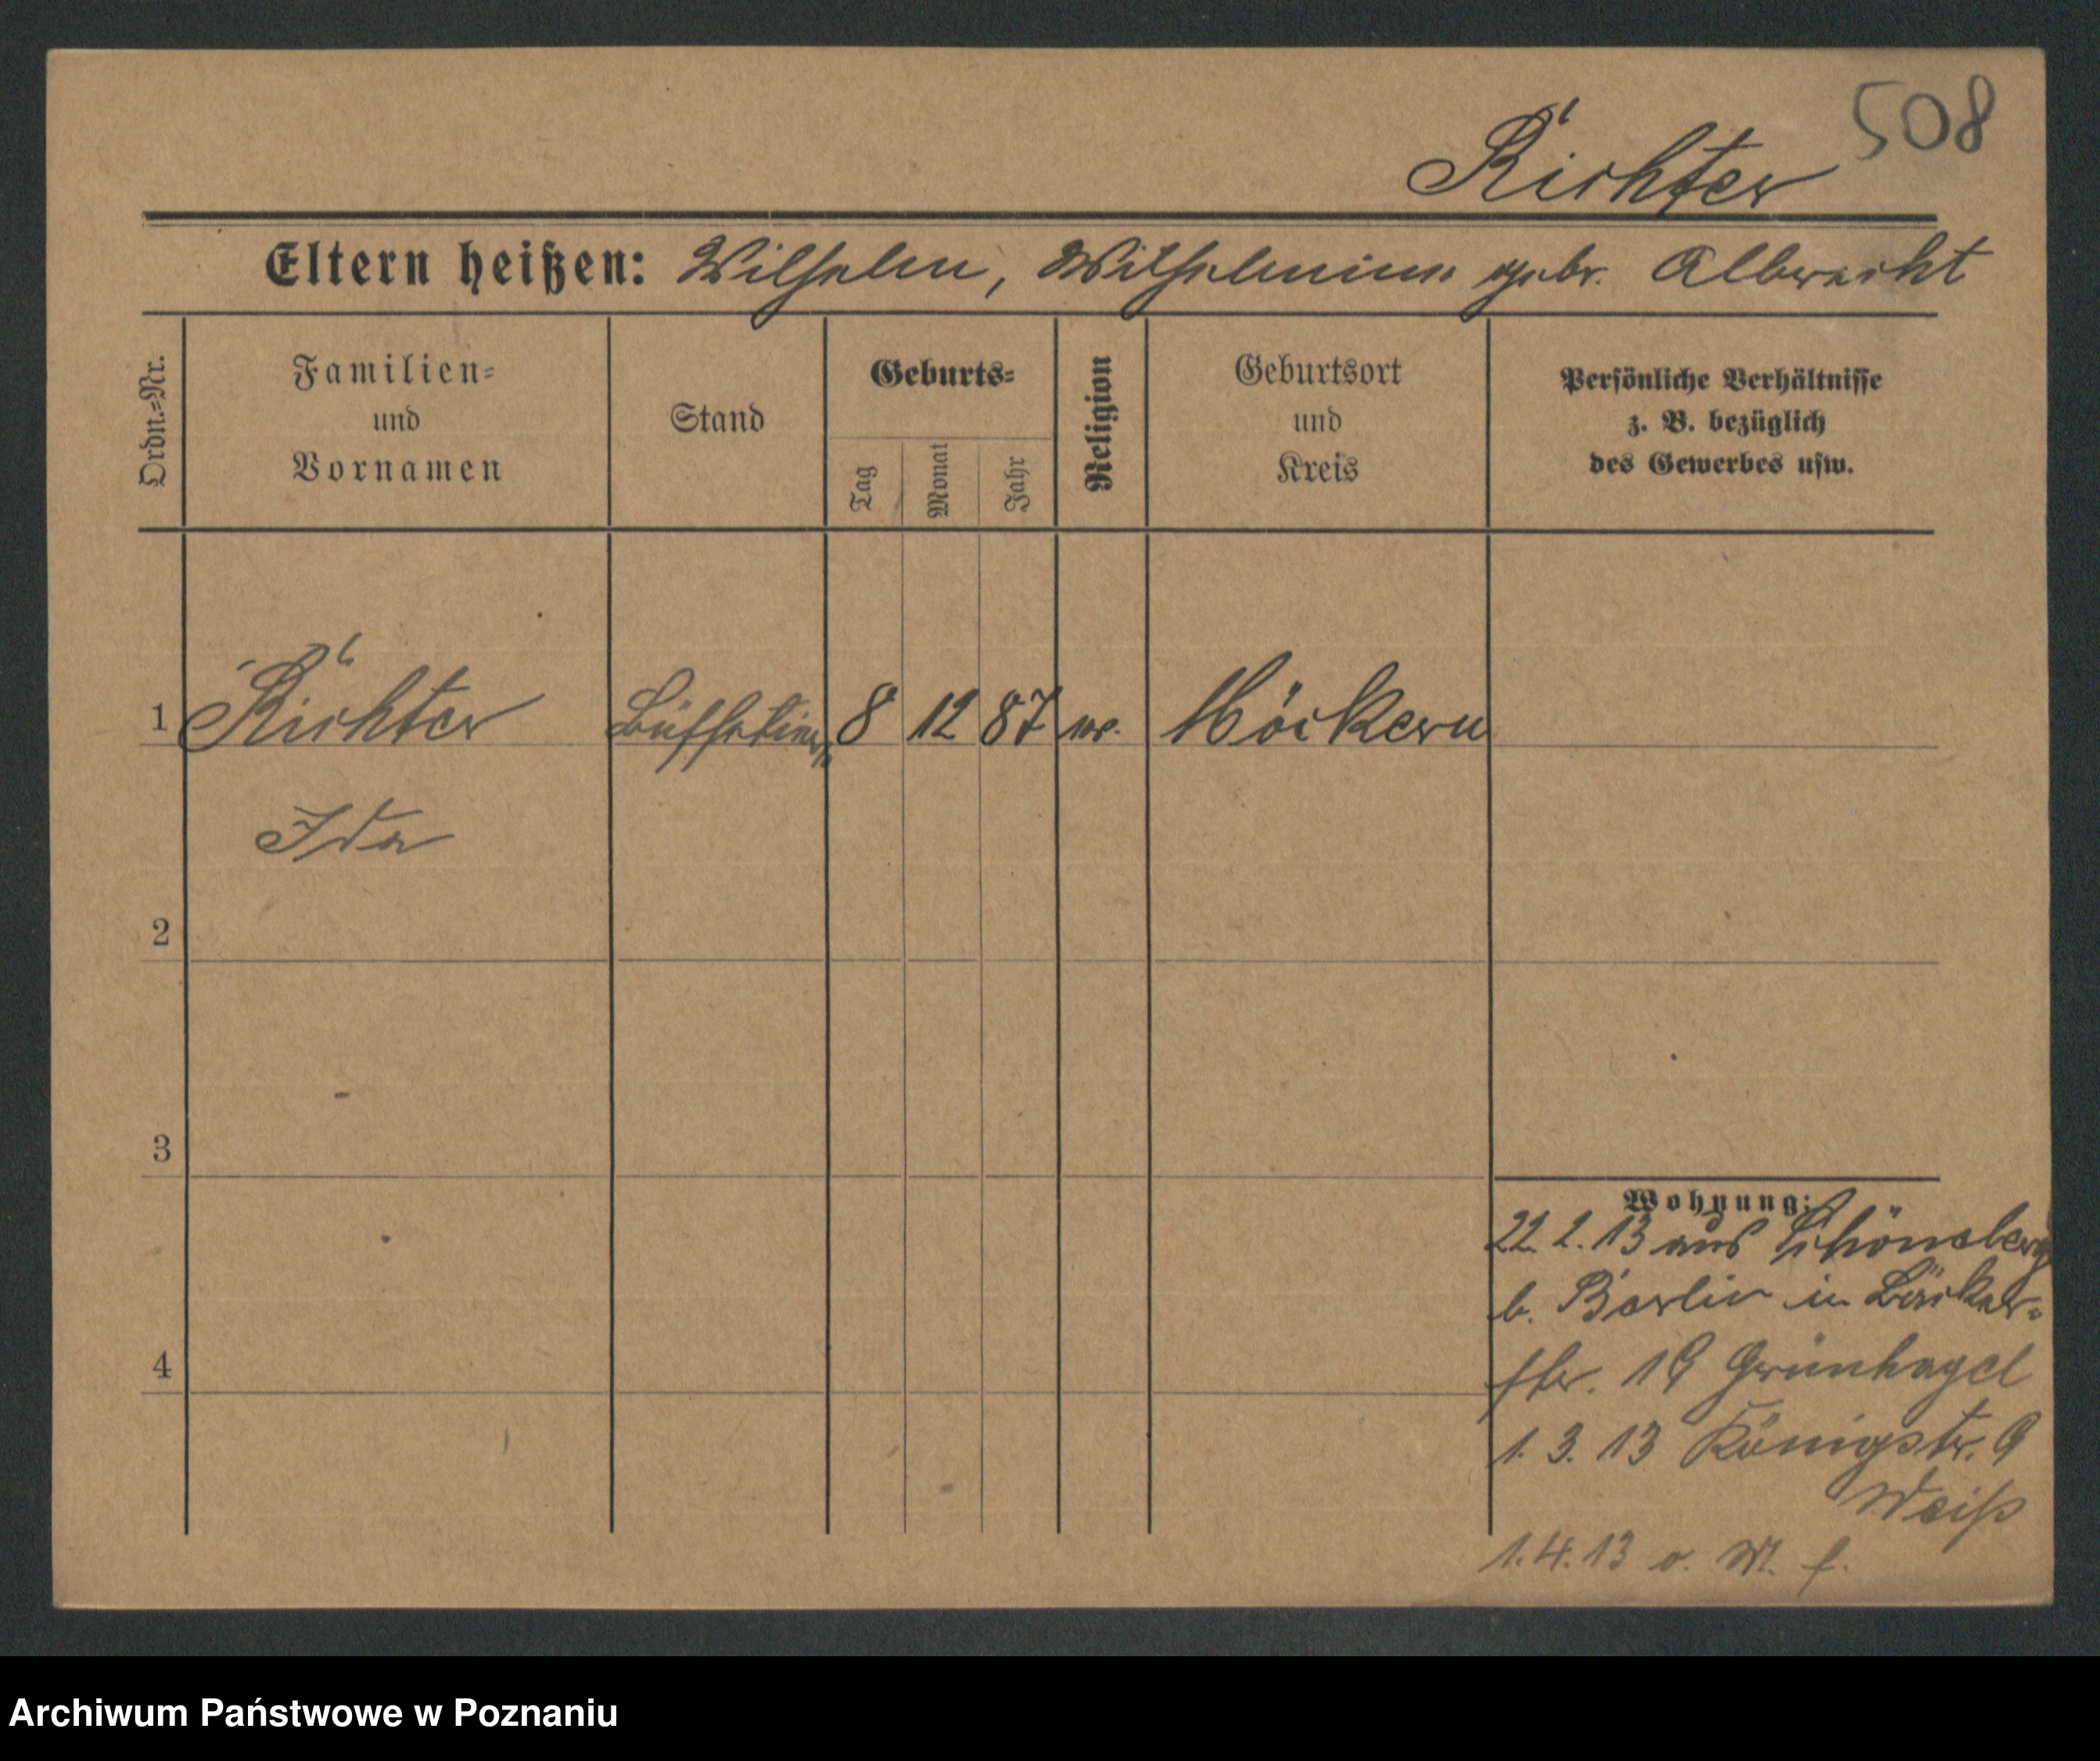 508
Richter
Eltern heißen: Wilhelm, Wilhelmine gebr. Albrecht
Ordn.=Nr.
Familien=
und
Vornamen
Stand
Geburts=
Tag
Monat
Jahr
Religion
Geburtsort
und
Kreis
Persönliche Verhältnisse
z. B. bezüglich
des Gewerbes usw.
1 Richter 8 12 87 Möckern
Ida
2
3
4
Wohnung:
22. 2. 13 aus Schöneberg
b. Berlin in Bäcker=
str. 19 Grünhagel
1. 3. 13 Königstr. 9
Weiß
1. 4. 13
Archiwum Państwowe w Poznaniu